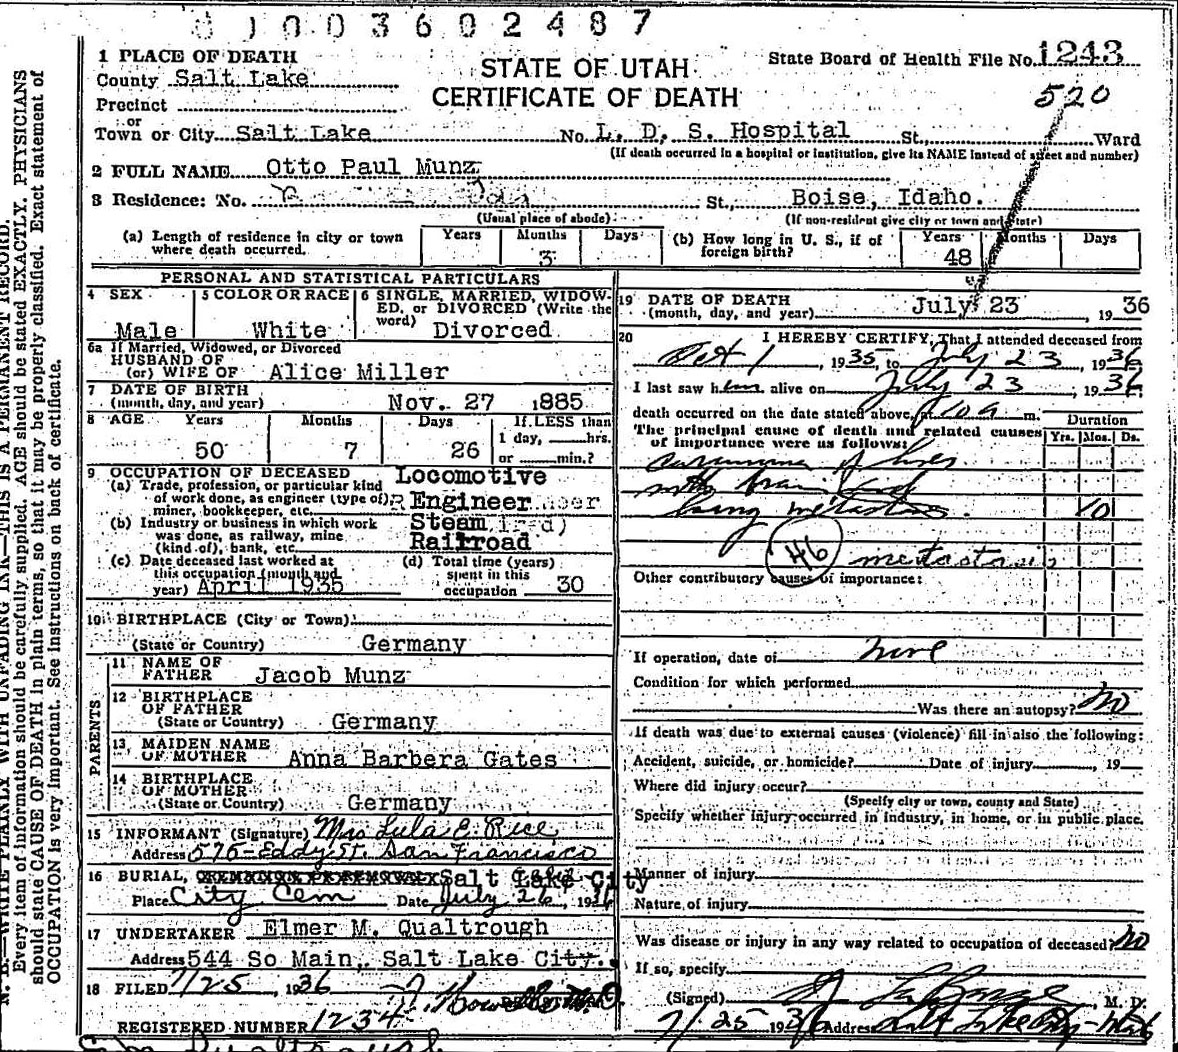 0 1 0 0 3 6 0 2 4 8 7
STATE OF UTAH
CERTIFICATE OF DEATH
State Board of Health File No. 1243
520
1 PLACE OF DEATH
County Salt Lake
Precinct
or
Town or City Salt Lake No. L. D. S. Hospital St., Ward
(If death occurred in a hospital or institution, give its NAME instead of street and number)
2 FULL NAME Otto Paul Munz
3 Residence: No. St., Boise, Idaho.
(Usual place of abode) (If non-resident give city or town and state)
(a) Length of residence in city or town where death occurred. Years Months 3 Days
(b) How long in U. S., if of foreign birth? Years 48 Months Days
PERSONAL AND STATISTICAL PARTICULARS
4 SEX Male
5 COLOR OR RACE White
6 SINGLE, MARRIED, WIDOW-
ED, or DIVORCED (Write the
word) Divorced
6a If Married, Widowed, or Divorced
HUSBAND OF
(or) WIFE OF Alice Miller
7 DATE OF BIRTH
(month, day, and year) Nov. 27 1885
8 AGE Years 50 Months 7 Days 26 If LESS than
1 day, hrs.
or min.?
9 OCCUPATION OF DECEASED
(a) Trade, profession, or particular kind
of work done, as engineer (type of),
miner, bookkeeper, etc. Locomotive Engineer
(b) Industry or business in which work
was done, as railway, mine
(kind of), bank, etc. Steam Railroad
(c) Date deceased last worked at
this occupation (month and
year) April 1935
(d) Total time (years)
spent in this
occupation 30
10 BIRTHPLACE (City or Town)
(State or Country) Germany
PARENTS
11 NAME OF
FATHER Jacob Munz
12 BIRTHPLACE
OF FATHER
(State or Country) Germany
13 MAIDEN NAME
OF MOTHER Anna Barbera Gates
14 BIRTHPLACE
OF MOTHER
(State or Country) Germany
15 INFORMANT (Signature) Mrs Lula E. Rice
Address 575-Eddy St. San Francisco
16 BURIAL, Salt Lake City
Place City Cem Date July 26, 1936
17 UNDERTAKER Elmer M. Qualtrough
Address 544 So Main, Salt Lake City.
18 FILED 7/25, 1936
REGISTERED NUMBER 1234
19 DATE OF DEATH
(month, day, and year) July 23, 1936
20 I HEREBY CERTIFY, That I attended deceased from
Oct 1, 1935, to July 23, 1936
I last saw him alive on July 23, 1936
death occurred on the date stated above, at 10 a m.
The principal cause of death and related causes
of importance were as follows:
Duration
Yrs. Mos. Ds.
with brain and
lung metastasis. 10
46 metastasis
Other contributory causes of importance:
If operation, date of none
Condition for which performed
Was there an autopsy? No
If death was due to external causes (violence) fill in also the following:
Accident, suicide, or homicide? Date of injury, 19
Where did injury occur?
(Specify city or town, county and State)
Specify whether injury occurred in industry, in home, or in public place.
Manner of injury
Nature of injury
Was disease or injury in any way related to occupation of deceased? No
If so, specify
(Signed) M. D.
7/25 1936 Address Salt Lake City-Utah
N. B.—WRITE PLAINLY WITH UNFADING INK—THIS IS A PERMANENT RECORD.
Every item of information should be carefully supplied. AGE should be stated EXACTLY. PHYSICIANS
should state CAUSE OF DEATH in plain terms, so that it may be properly classified. Exact statement of
OCCUPATION is very important. See instructions on back of certificate.